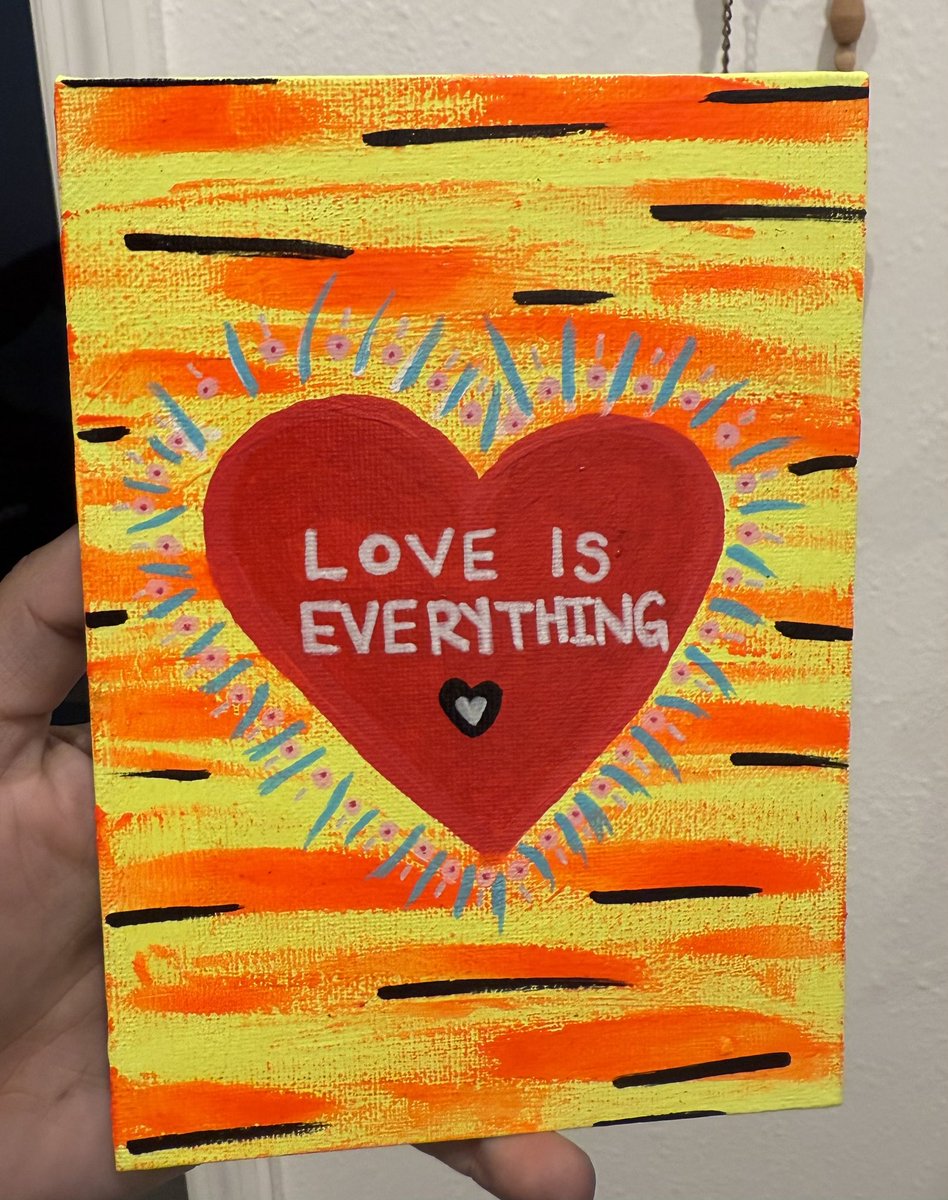 LOVE IS
EVERYTHING